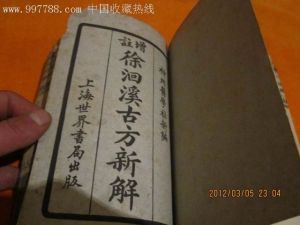 www.997788.com 中国收藏热线
增註
徐洄溪古方新解
上海世界書局出版
2012/03/05 23:04